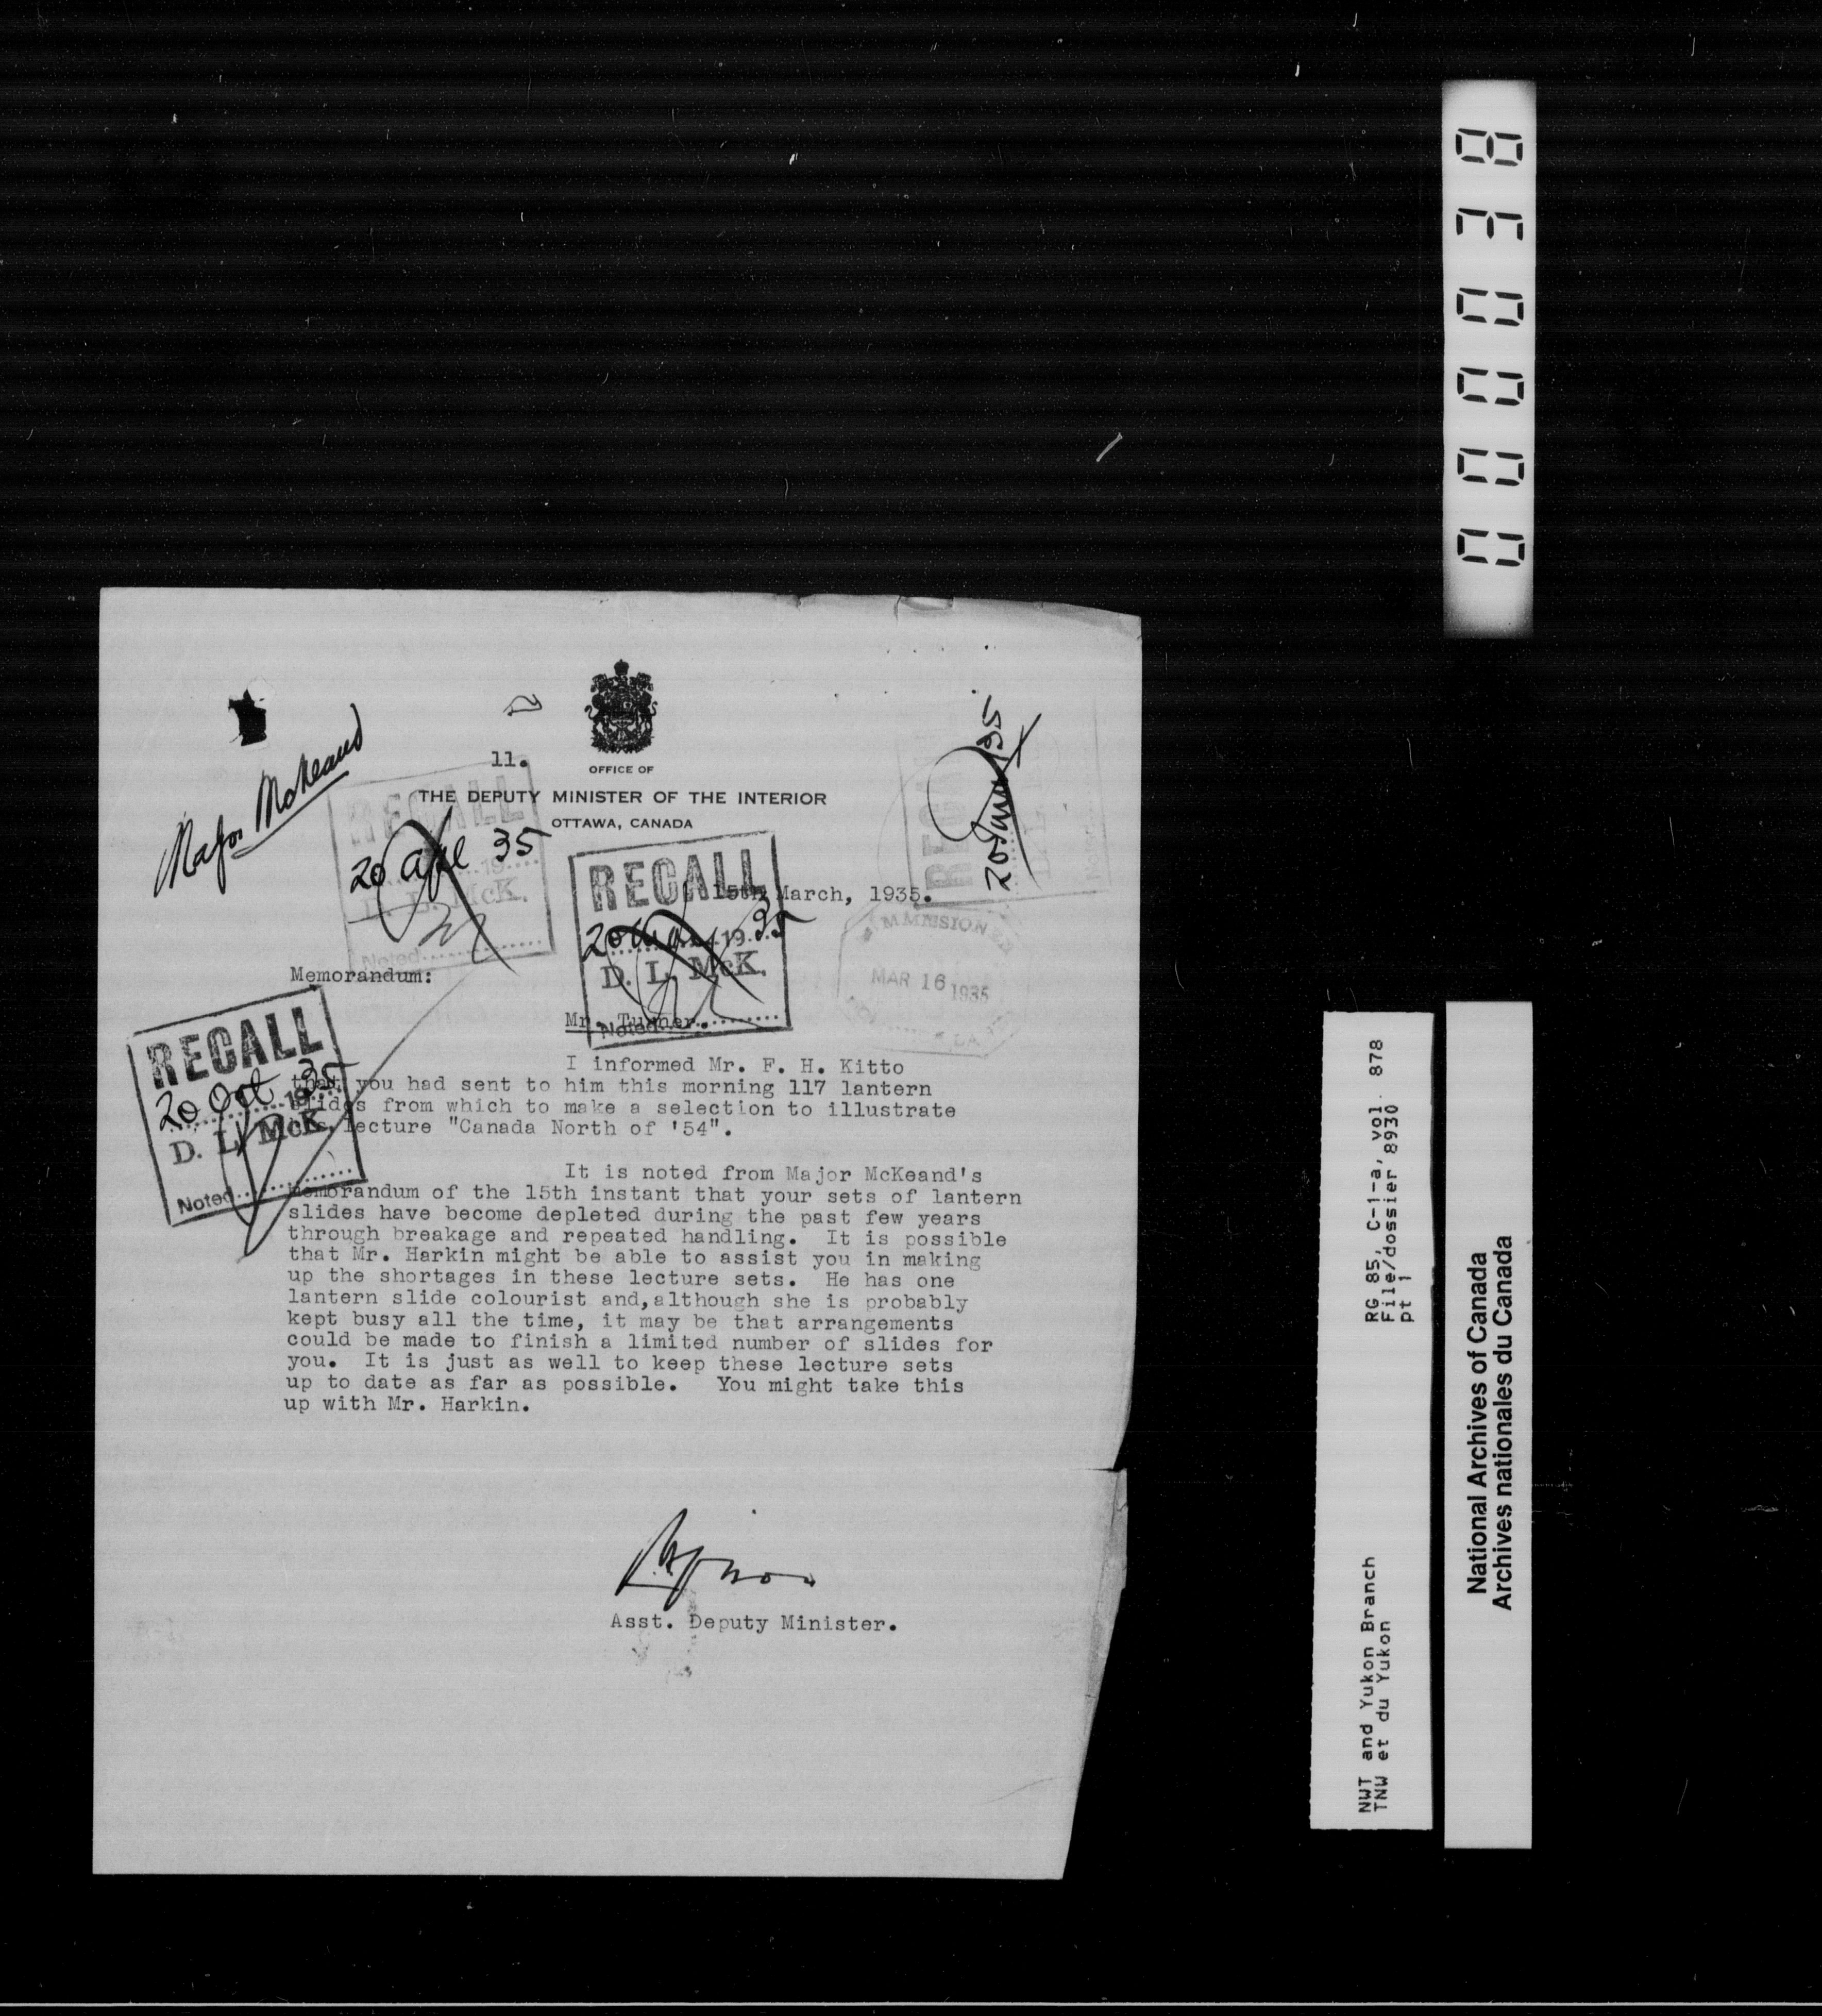 Major McKeand
11.
OFFICE OF
THE DEPUTY MINISTER OF THE INTERIOR
OTTAWA, CANADA
RECALL
20 Apl 35
19
D. L. McK.
Noted
RECALL
20 35
19
D. L. McK.
Noted
RECALL
20 June 35
15th March, 1935.
MMISSIONE
MAR 16 1935
Memorandum:
Mr. Turner.
RECALL
20 Oct 35
19
D. L. McK.
Noted
I informed Mr. F. H. Kitto
that you had sent to him this morning 117 lantern
slides from which to make a selection to illustrate
his lecture "Canada North of '54".
It is noted from Major McKeand's
memorandum of the 15th instant that your sets of lantern
slides have become depleted during the past few years
through breakage and repeated handling. It is possible
that Mr. Harkin might be able to assist you in making
up the shortages in these lecture sets. He has one
lantern slide colourist and,although she is probably
kept busy all the time, it may be that arrangements
could be made to finish a limited number of slides for
you. It is just as well to keep these lecture sets
up to date as far as possible. You might take this
up with Mr. Harkin.
Asst. Deputy Minister.
000038
NWT and Yukon Branch RG 85, C-1-a, vol. 878
TNW et du Yukon File/dossier 8930
pt 1
National Archives of Canada
Archives nationales du Canada